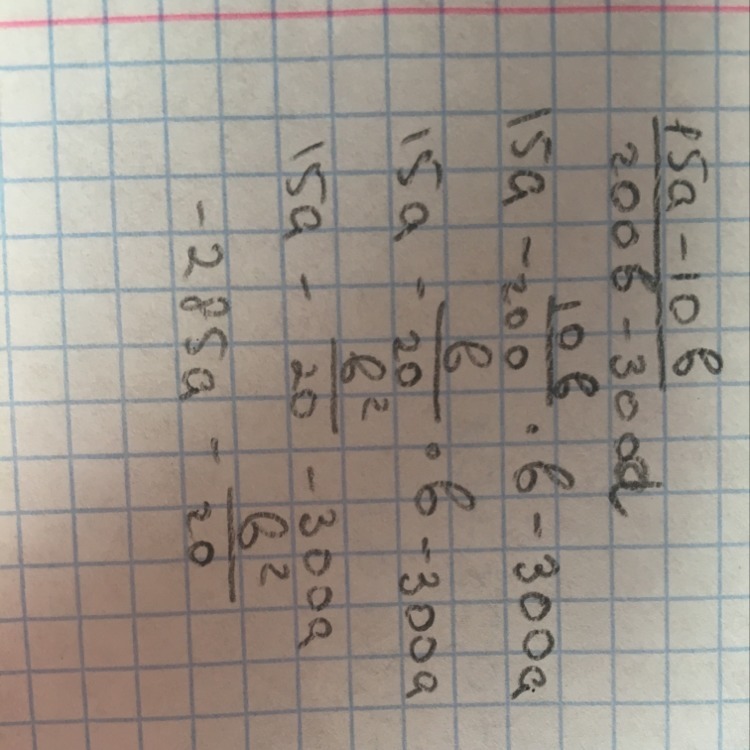 15a - 10b
200b - 300a
15a - 10b/200 · b - 300a
15a - b/20 · b - 300a
15a - b²/20 - 300a
-285a - b²/20